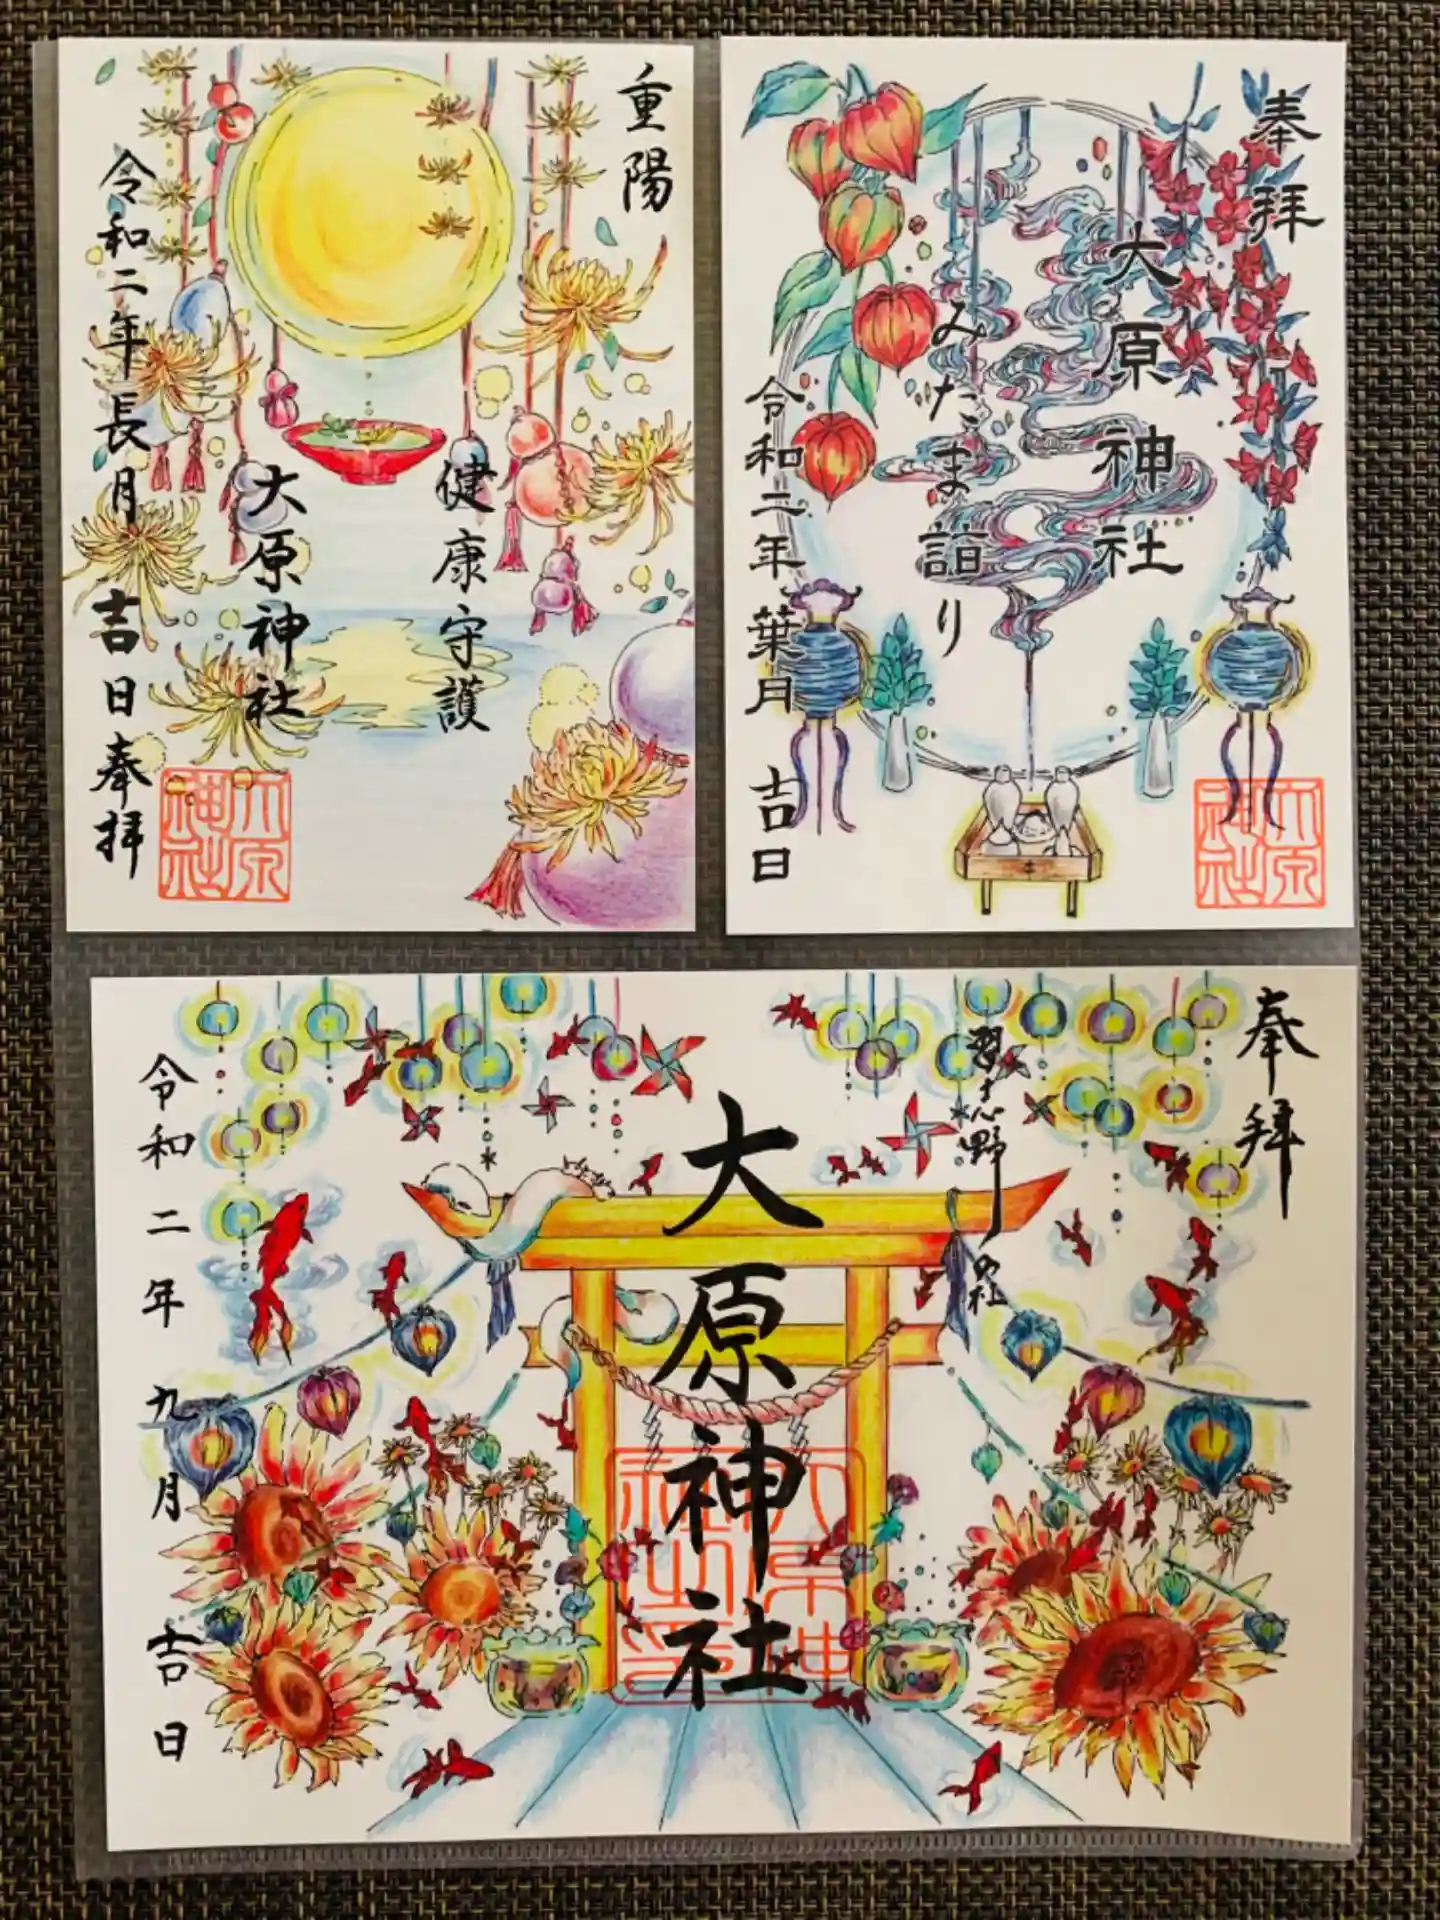 重陽
健康守護
大原神社
令和二年長月吉日奉拝
大原神社
奉拝
大原神社
みたま詣り
令和二年葉月吉日
大原神社
奉拝
習志野の社
大原神社
令和二年九月吉日
大原神社之印